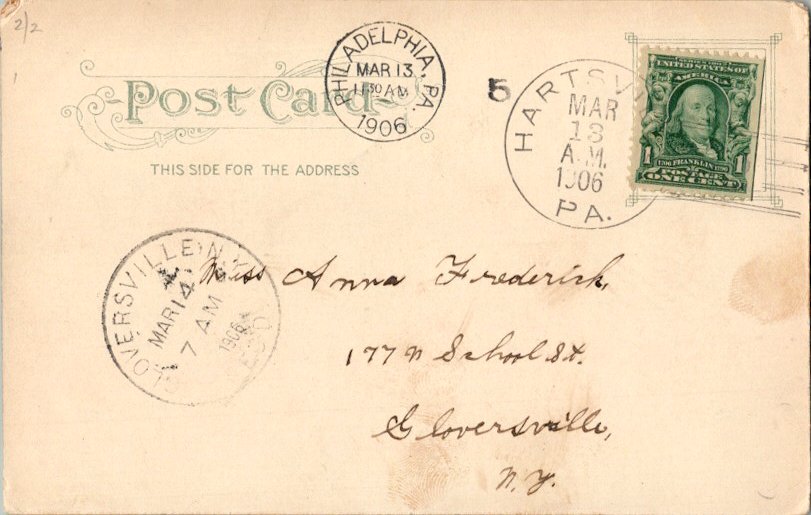 2/2
Post Card
THIS SIDE FOR THE ADDRESS
PHILADELPHIA, PA.
MAR 13
11 30 AM
1906
5
HARTSVI
MAR
13
A.M.
1906
PA.
UNITED STATES OF
AMERICA
1 1706 FRANKLIN 1790 1
POSTAGE
ONE CENT
GLOVERSVILLE N.Y.
MAR 14
7 AM
1906
REC'D
Miss Anna Frederick,
177 N School St.
Gloversville,
N.Y.